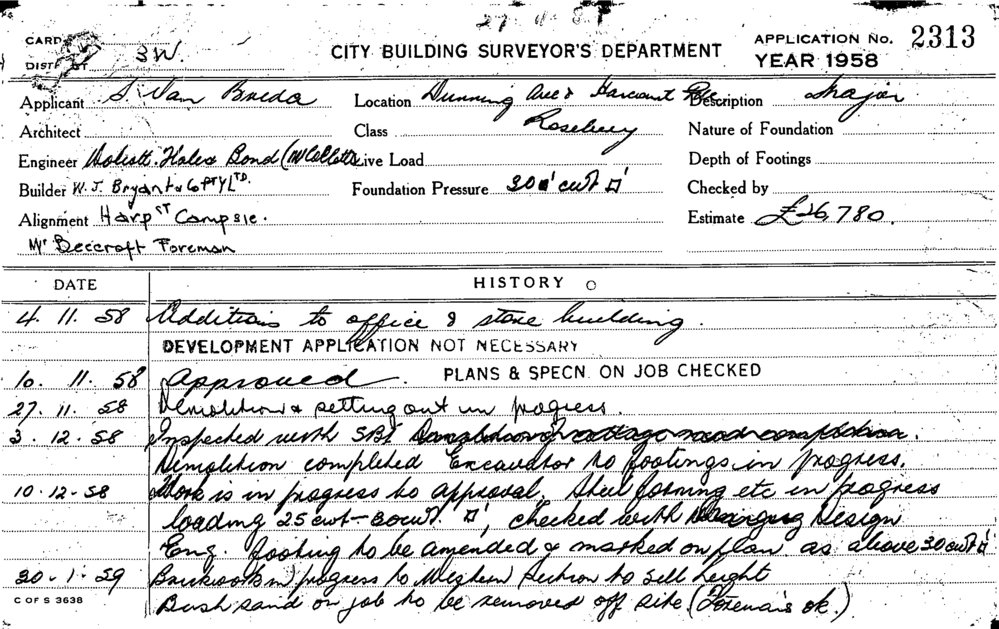 27. 11. 58
CARD
3W.
CITY BUILDING SURVEYOR'S DEPARTMENT
APPLICATION No. 2313
DIST
YEAR 1958
Applicant S. Van Breda Location Dunning Ave & Harcourt Description Major
Architect Class Rosebery Nature of Foundation
Engineer Wolcott. Hales & Bond Live Load Depth of Footings
Builder W. J. Bryant & Co PTY LTD. Foundation Pressure 30 cwt □' Checked by
Alignment Harp ST Campsie. Estimate £26,780.
Mr Beecroft Foreman
DATE HISTORY
4. 11. 58 Additions to office & store building.
DEVELOPMENT APPLICATION NOT NECESSARY
10. 11. 58 Approved. PLANS & SPECN. ON JOB CHECKED
27. 11. 58 Demolition & setting out in progress.
3. 12. 58 Inspected with SBI
Demolition completed Excavator to footings in progress.
10. 12. 58 Work is in progress to approval. Steel forming etc in progress
loading 25 cwt - 30 cwt. □', checked with Design
Eng. footing to be amended & marked on plan as above 30 cwt □'
30. 1. 59 Brickwork in progress to Western Section to sill height
C OF S 3638
Bush sand on job to be removed off site. (Foreman is ok.)